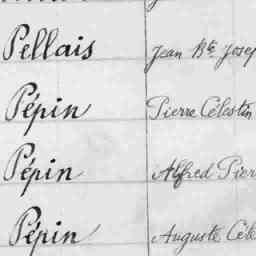 Pellais Jean Bte Josep
Pépin Pierre Célestin
Pépin Alfred Pier
Pépin Auguste Céle